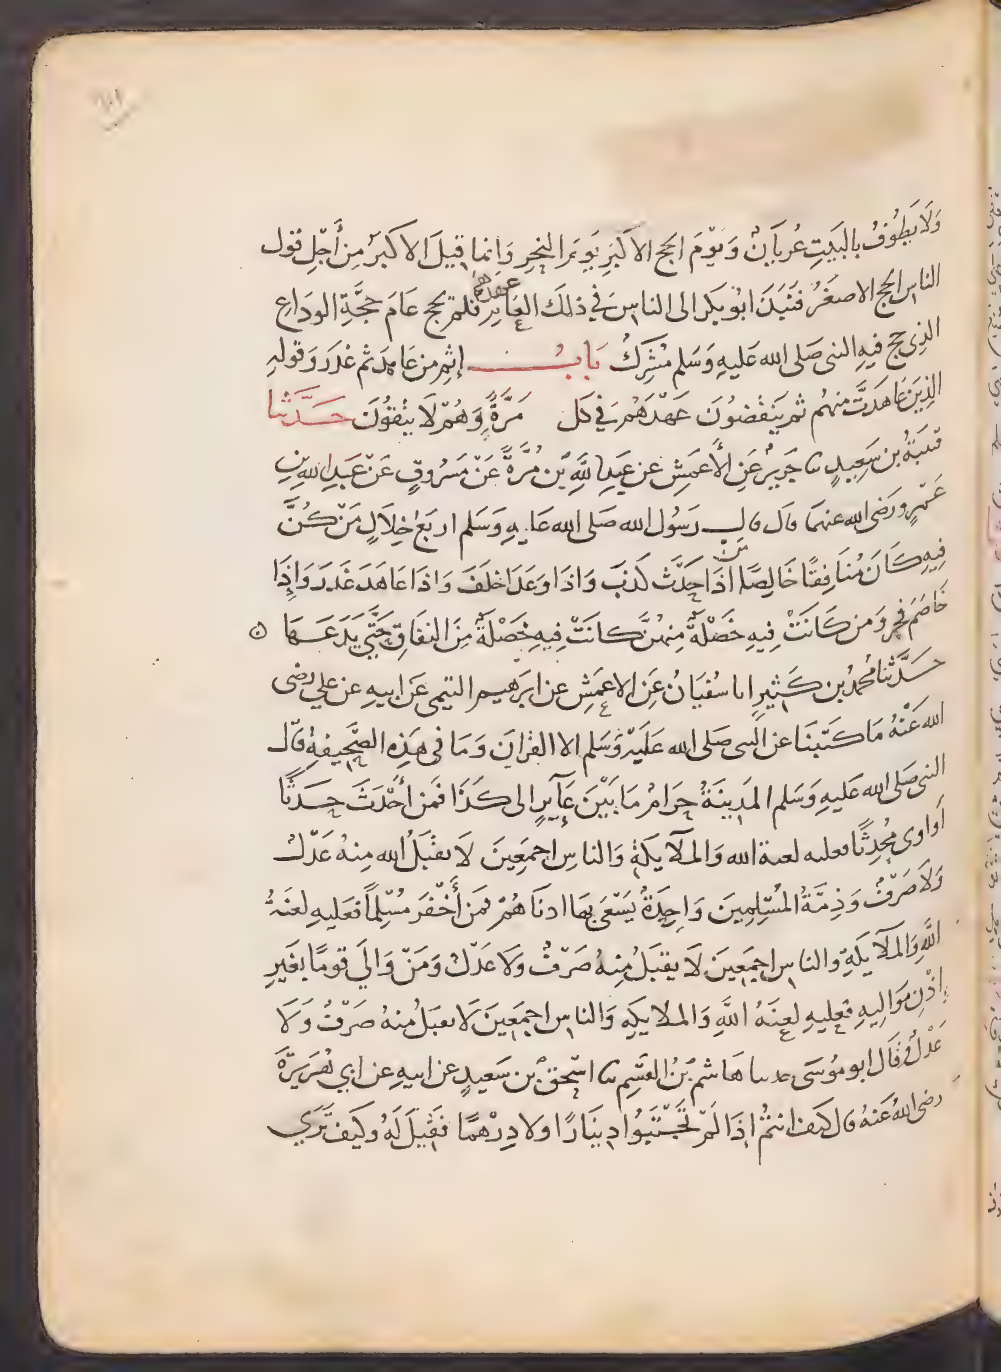 وَلَا يَطُوفُ بالبَيتِ عُريَانٌ وَيَوْمَ الحج الاكبَرِ يَومَ النحرِ وَإنما قيلَ الاكبَرُ مِن أَجْلِ قول
الناسِ الحج الاصغَرُ فَنَبَذَ ابُو بَكر الى الناس في ذلكَ العَامِ عهدهم فلم يحج عَامَ حجَّةِ الودَاعِ
الذِي حج فيهِ النبى صَلى الله عَليهِ وَسَلم مُشرِكٌ بَابُ إثمِ من عَاهَدَ ثم غدَرَ وَقولهِ
الذِينَ عَاهَدَتَّ منهُم ثم يَنقضُونَ عَهْدَهُم فى كل مَرَّةٍ وَهُمْ لَا يتقُونَ حَدَّثنا
قتيبَةُ بن سَعِيدٍ ثنا جَريرٌ عَنِ الأعمَشِ عن عَبدِ اللهِ بْنِ مُرَّةَ عَنْ مَسرُوقٍ عَنْ عَبدِ الله بنِ
عَمْرٍو رَضى الله عنهما قال قال رَسُول الله صَلى الله عَليهِ وَسَلم اربَعُ خِلَالٍ مَنْ كُنَّ
فيهِ كَانَ مُنَافِقًا خَالِصًا مَن اذَا حَدَّثَ كذبَ وَاذَا وَعَدَ اخلَفَ وَاذَا عَاهَدَ غَدَرَ وَإِذَا
خَاصَمَ فجرَ وَمَن كَانَتْ فِيهِ خَصْلَةٌ مِنهُنَّ كانَتْ فِيهِ خَصْلَةٌ مِنَ النفَاقِ حَتَّى يَدَعَهَا
حَدَّثنا محمدُ بن كَثيرٍ انا سُفيَانُ عَنِ الاعمَشِ عن ابرَهيم التيمى عَن ابيهِ عن علي رضى
الله عَنْهُ مَا كَتَبْنَا عن النبى صَلى الله عَلَيْهِ وَسَلم الا القرانَ وَمَا فى هَذِهِ الصَّحيفةِ قال
النبى صَلى الله عَليهِ وَسَلم المَدِينَةُ حَرَامٌ مَا بَيْنَ عَآيِرٍ الى كَذَا فَمَن أَحْدَثَ حَدَثًا
اَو اوى مُحْدِثًا فعليه لعنة الله وَالمَلَآيكَةِ وَالناسِ اجمَعِينَ لَا يقبَلُ الله مِنهُ عَدْلٌ
وَلَا صَرْفٌ وَذِمَّةُ المُسْلِمِينَ وَاحِدَةٌ يَسْعَى بهَا ادنَاهُمْ فمَن أَخْفَرَ مُسْلِمًا فعَليهِ لعَنَةُ
اللهِ وَالمَلَآيكَةِ والناسِ اجمَعِينَ لَا يقبَلُ مِنهُ صَرْفٌ وَلَا عَدْلٌ وَمَنْ وَالَى قومًا بغَيرِ
إذْنِ مَوَالِيهِ فعليهِ لعنَةُ اللهِ وَالملايكهِ وَالناسِ اجمَعينَ لَا يقبَلُ مِنهُ صَرْفٌ وَلَا
عَدْلٌ وَقَال ابو مُوسَى حدثنا هَاشم بْنُ القسِمِ ثنا اسْحقُ بْن سَعيدٍ عن ابيهِ عن ابي هُرَيرَةَ
رضى اللهُ عَنهُ قال كيف انتُمْ اذَا لَمْ تَجْتَبُوا دِينَارًا ولا دِرْهمًا فقِيلَ لَهُ وَكَيفَ تَرَى